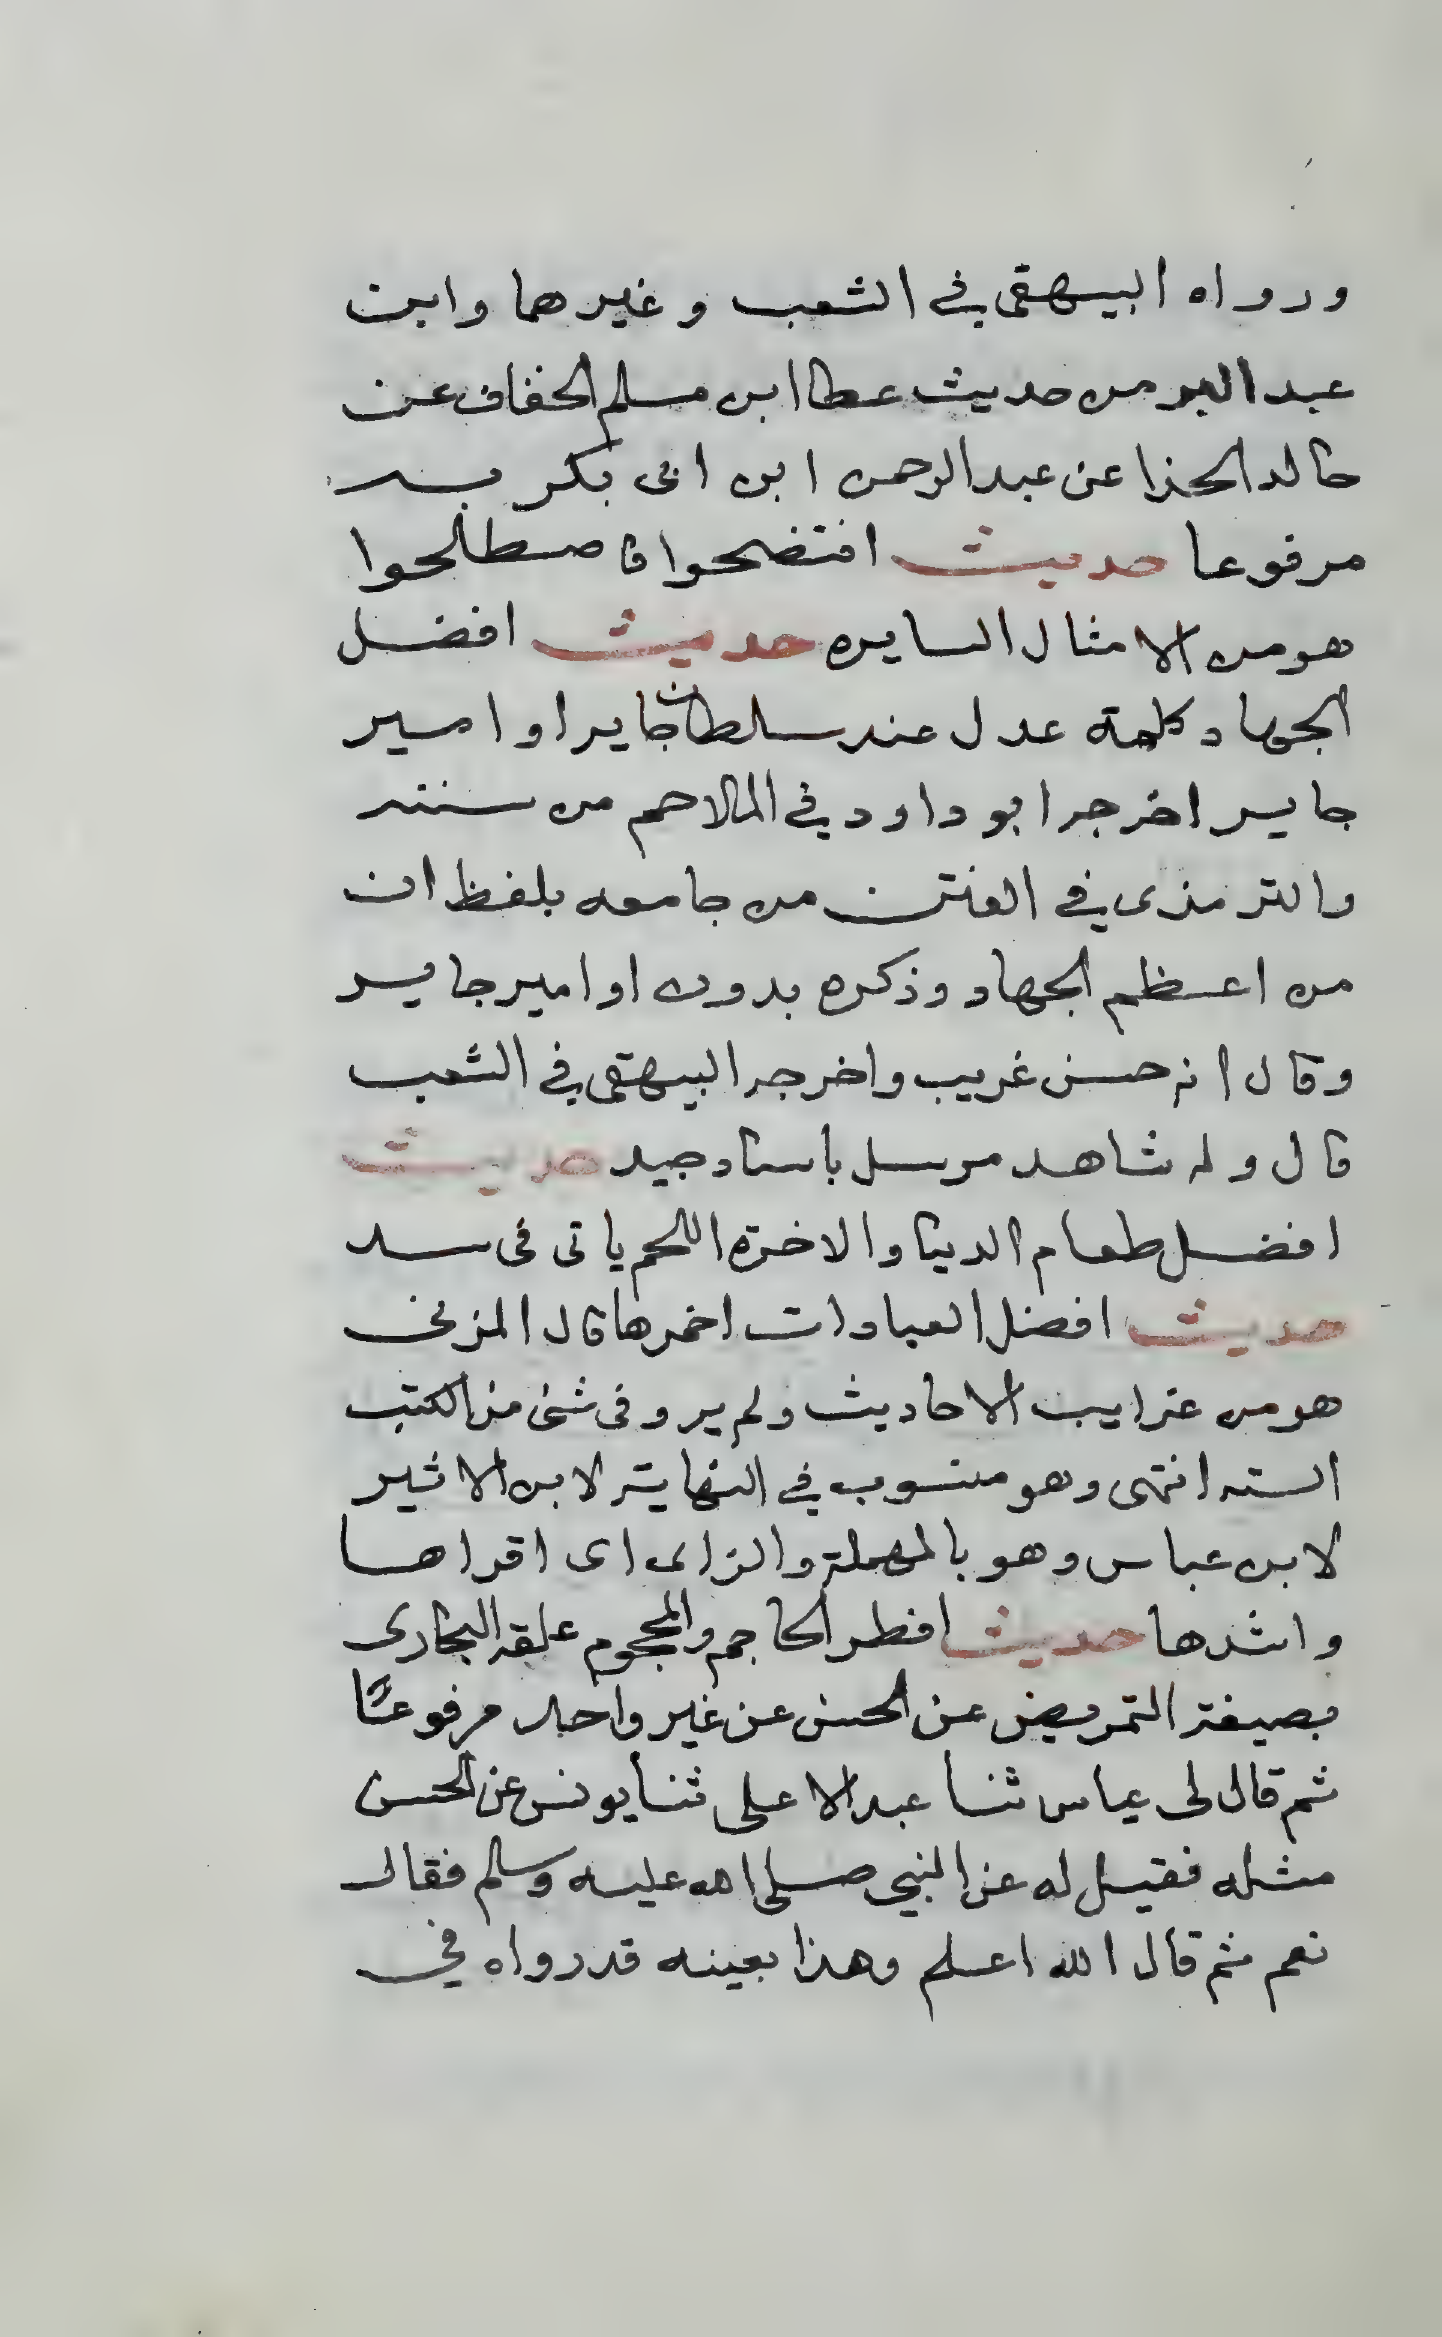 ورواه البيهقي في الشعب وغيرهما وابن
عبد البر من حديث عطا ابن مسلم الخفاف عن
خالد الحذا عن عبد الرحمن ابن ابى بكر به
مرفوعا حديث افتضحوا فاصطلحوا
هو من الامثال السايره حديث افضل
الجهاد كلمة عدل عند سلطان جاير او امير
جاير اخرجه ابو داود في الملاحم من سننه
والترمذى في الفتن من جامعه بلفظ ان
من اعظم الجهاد وذكره بدون او امير جاير
وقال انه حسن غريب واخرجه البيهقى في الشعب
قال وله شاهد مرسل باسناد جيد حديث
افضل طعام الدينا والاخرة اللحم ياتى فى سيد
حديث افضل العبادات احمزها قال المزنى
هو من غرايب الاحاديث ولم يرو فى شئ من الكتب
السته انتهى وهو منسوب في النهاية لابن الاثير
لابن عباس وهو بالمهملة والزاى اى اقواها
واشدها حديث افطر الحاجم والمحجوم علقه البخارى
بصيغة التمريض عن الحسن عن غير واحد مرفوعًا
ثم قال لى عياس ثنا عبد الاعلى ثنا يونس عن الحسن
مثله فقيل له عن النبي صلى الله عليه وسلم فقال
نعم ثم قال الله اعلم وهذا بعينه قد رواه في